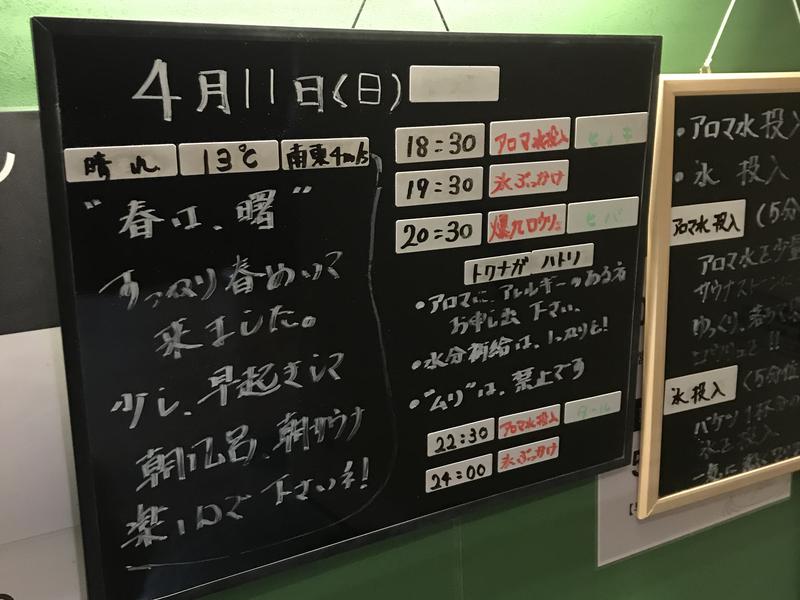 4月11日(日)
晴れ 13℃ 南東4m/s
"春は、曙"
すっかり春めいて
来ました。
少し、早起きして
朝風呂、朝サウナ
楽しんで下さいネ!
18:30 アロマ水投入 ヒノキ
19:30 氷ぶっかけ
20:30 爆風ロウリュ ヒバ
トクナガ ハトリ
・アロマに、アレルギーのある方
お申し出下さい。
・水分補給は、しっかりと!
・"ムリ"は、禁止です
22:30 アロマ水投入
24:00 氷ぶっかけ
・アロマ水投入
・氷 投入
アロマ水投入 (5分
アロマ水を少量
サウナストーンに
ゆっくり、
氷投入 (5分位
バケツ1杯分の
氷を投入
一気に